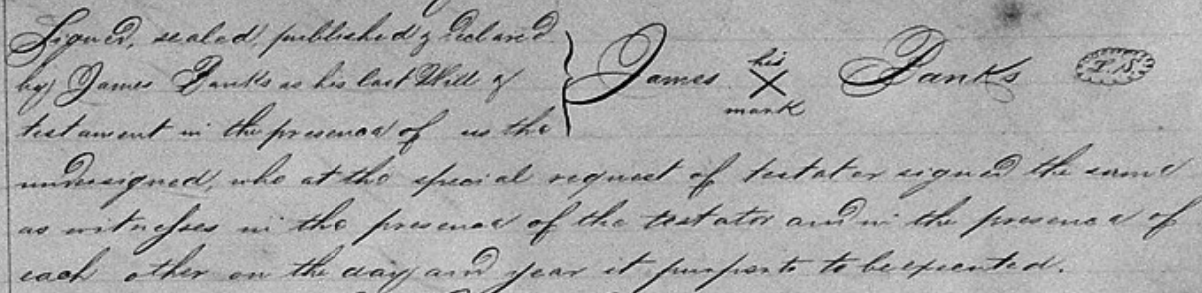 Signed, sealed, published & declared
by James Panks as his last Will &
testament in the presence of us the
James his X mark Panks L.S.
undersigned, who at the special request of testator signed the same
as witnesses in the presence of the testator and in the presence of
each other on the day and year it purports to be executed.